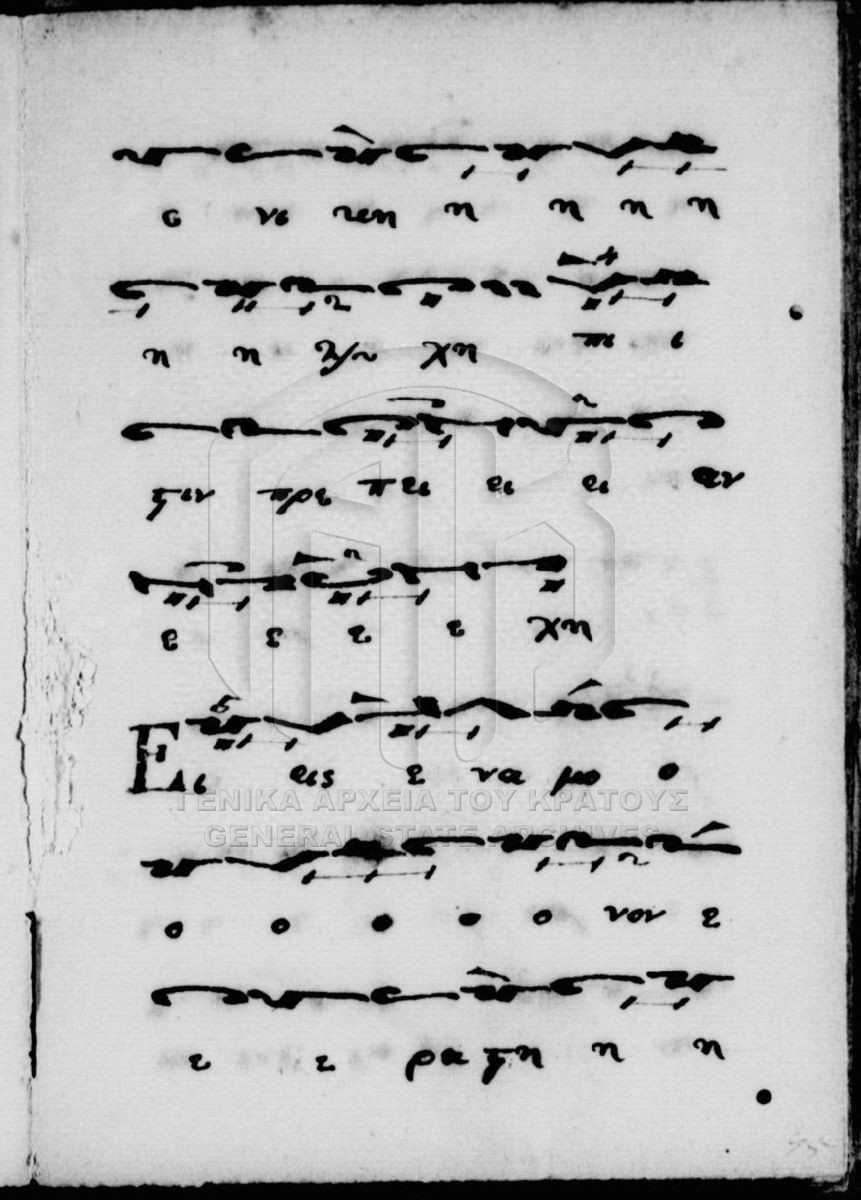 ε νε τεη η η η η
η η λω χη πι ι
ζιν πρε πει ει ει αν
ε ε ε ε χη
Ει εις ε να μο ο
ΓΕΝΙΚΑ ΑΡΧΕΙΑ ΤΟΥ ΚΡΑΤΟΥΣ
GENERAL STATE ARCHIVES
ο ο ο ο ο νον ε
ε ε ρα ζη η η